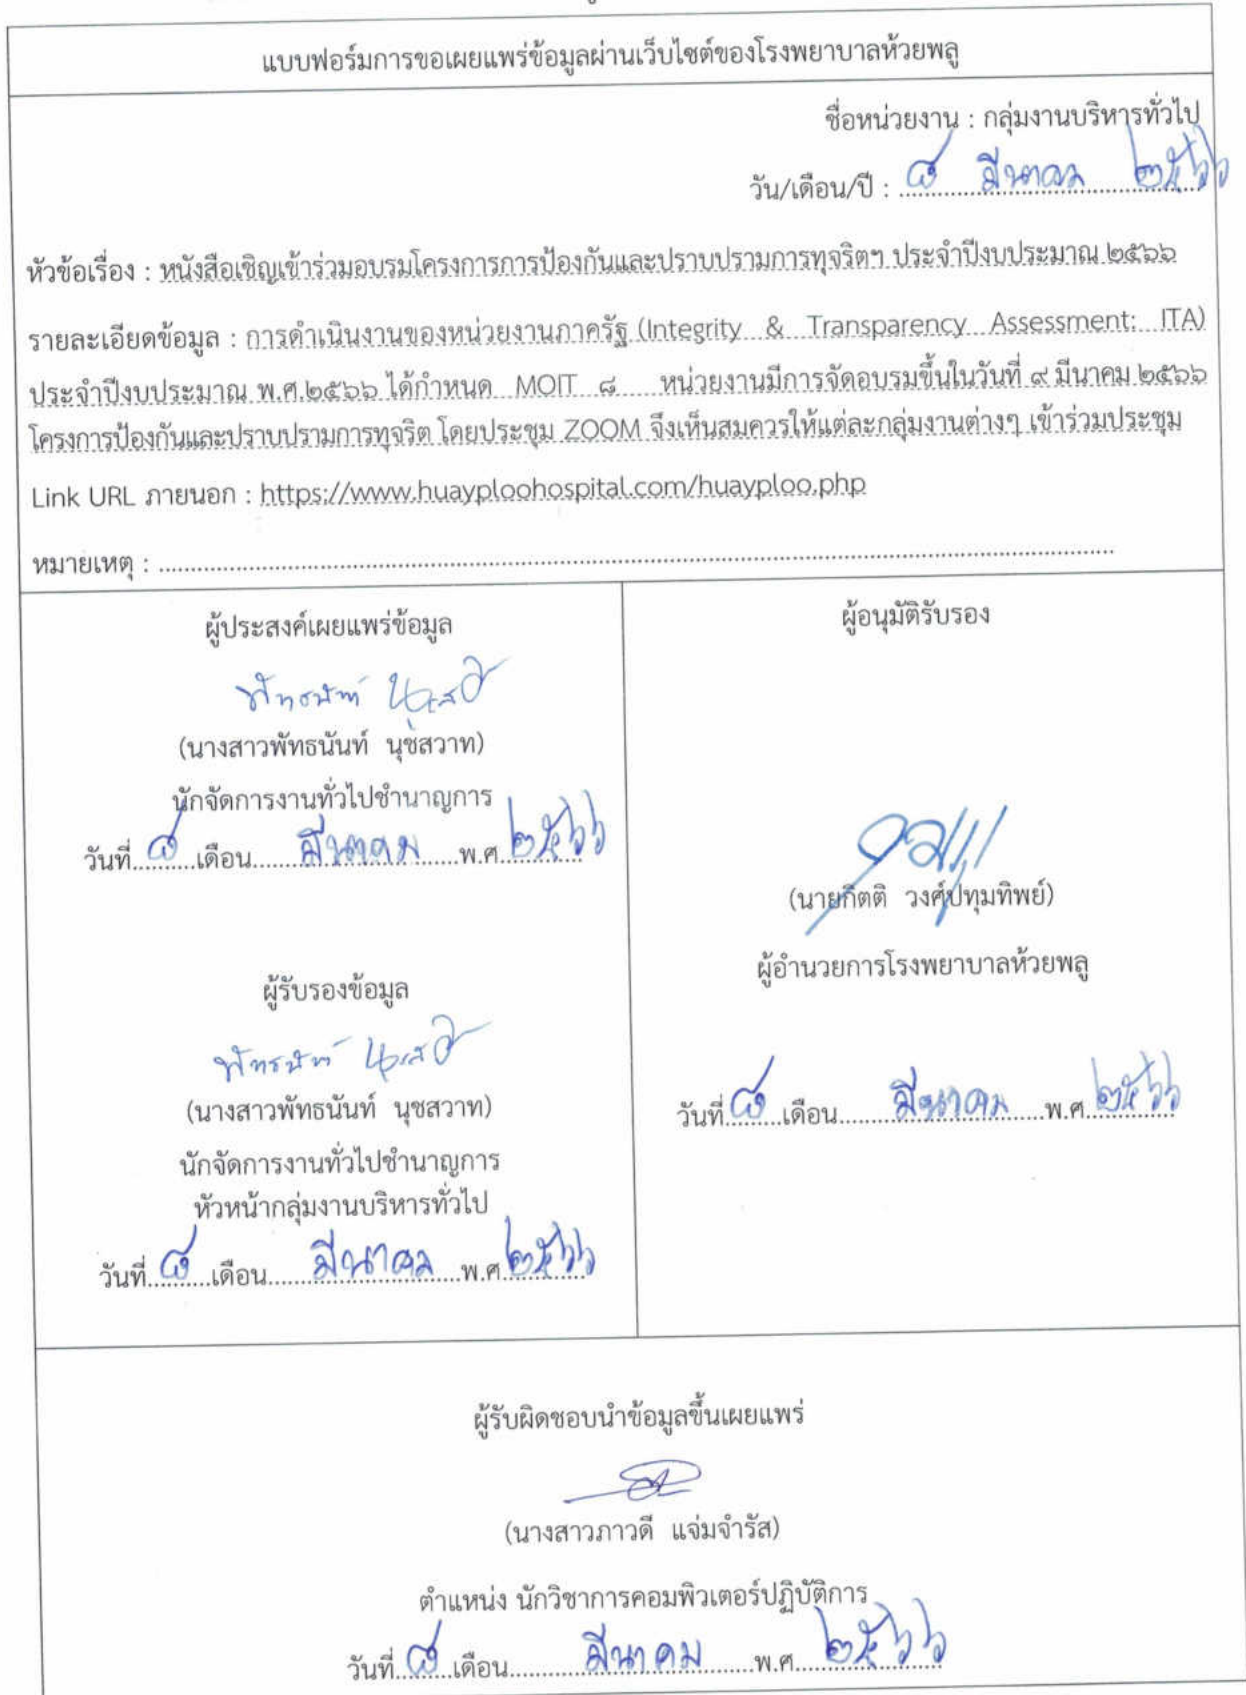 แบบฟอร์มการขอเผยแพร่ข้อมูลผ่านเว็บไซต์ของโรงพยาบาลห้วยพลู
ชื่อหน่วยงาน : กลุ่มงานบริหารทั่วไป
วัน/เดือน/ปี : ๘ มีนาคม ๒๕๖๖
หัวข้อเรื่อง : หนังสือเชิญเข้าร่วมอบรมโครงการการป้องกันและปราบปรามการทุจริตฯ ประจำปีงบประมาณ ๒๕๖๖
รายละเอียดข้อมูล : การดำเนินงานของหน่วยงานภาครัฐ (Integrity & Transparency Assessment: ITA)
ประจำปีงบประมาณ พ.ศ.๒๕๖๖ ได้กำหนด MOIT ๘ หน่วยงานมีการจัดอบรมขึ้นในวันที่ ๙ มีนาคม ๒๕๖๖
โครงการป้องกันและปราบปรามการทุจริต โดยประชุม ZOOM จึงเห็นสมควรให้แต่ละกลุ่มงานต่างๆ เข้าร่วมประชุม
Link URL ภายนอก : https://www.huayploohospital.com/huayploo.php
หมายเหตุ : ........................................
ผู้ประสงค์เผยแพร่ข้อมูล
(นางสาวพัทธนันท์ นุชสวาท)
นักจัดการงานทั่วไปชำนาญการ
วันที่ ๘ เดือน มีนาคม พ.ศ ๒๕๖๖
ผู้รับรองข้อมูล
(นางสาวพัทธนันท์ นุชสวาท)
นักจัดการงานทั่วไปชำนาญการ
หัวหน้ากลุ่มงานบริหารทั่วไป
วันที่ ๘ เดือน มีนาคม พ.ศ ๒๕๖๖
ผู้อนุมัติรับรอง
(นายกิตติ วงศ์ปทุมทิพย์)
ผู้อำนวยการโรงพยาบาลห้วยพลู
วันที่ ๘ เดือน มีนาคม พ.ศ ๒๕๖๖
ผู้รับผิดชอบนำข้อมูลขึ้นเผยแพร่
(นางสาวภาวดี แจ่มจำรัส)
ตำแหน่ง นักวิชาการคอมพิวเตอร์ปฏิบัติการ
วันที่ ๘ เดือน มีนาคม พ.ศ. ๒๕๖๖